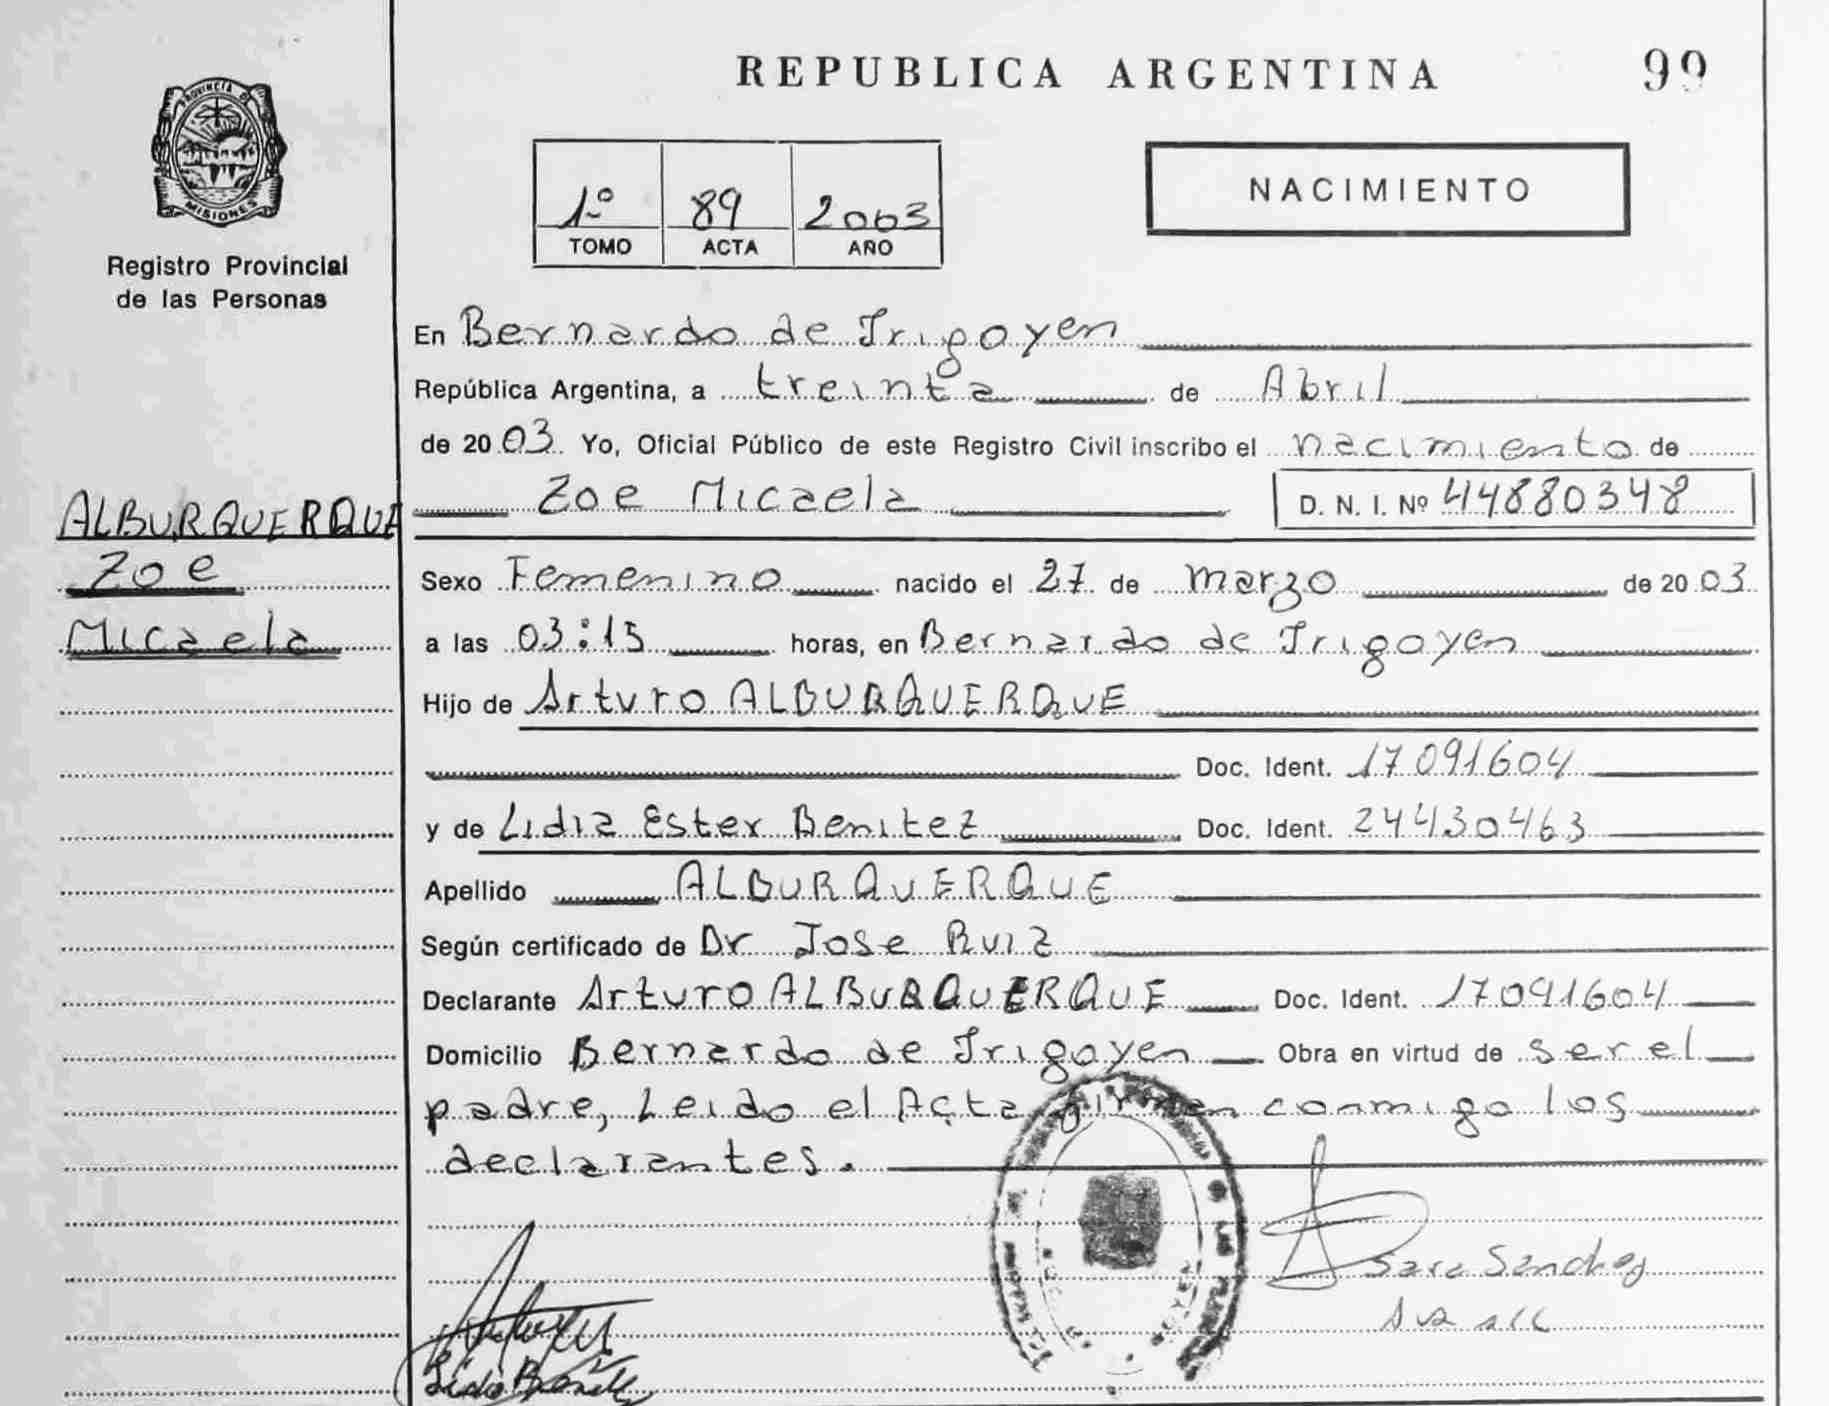 REPUBLICA ARGENTINA 99
PROVINCIA DE
MISIONES
Registro Provincial
de las Personas
1º 89 2003
TOMO ACTA AÑO
NACIMIENTO
En Bernardo de Irigoyen
República Argentina, a treinta de Abril
de 2003 Yo, Oficial Público de este Registro Civil inscribo el nacimiento de
Zoe Micaela D. N. I. Nº 44880348
ALBURQUERQUE
Zoe
Micaela
Sexo Femenino nacido el 27 de marzo de 2003
a las 03:15 horas, en Bernardo de Irigoyen
Hijo de Arturo ALBURQUERQUE
Doc. Ident. 17091604
y de Lidia Ester Benitez Doc. Ident. 24430463
Apellido ALBURQUERQUE
Según certificado de Dr Jose Ruiz
Declarante Arturo ALBURQUERQUE Doc. Ident. 17091604
Domicilio Bernardo de Irigoyen Obra en virtud de ser el
padre, Leido el Acta firman conmigo los
declarantes.
Sara Sanchez